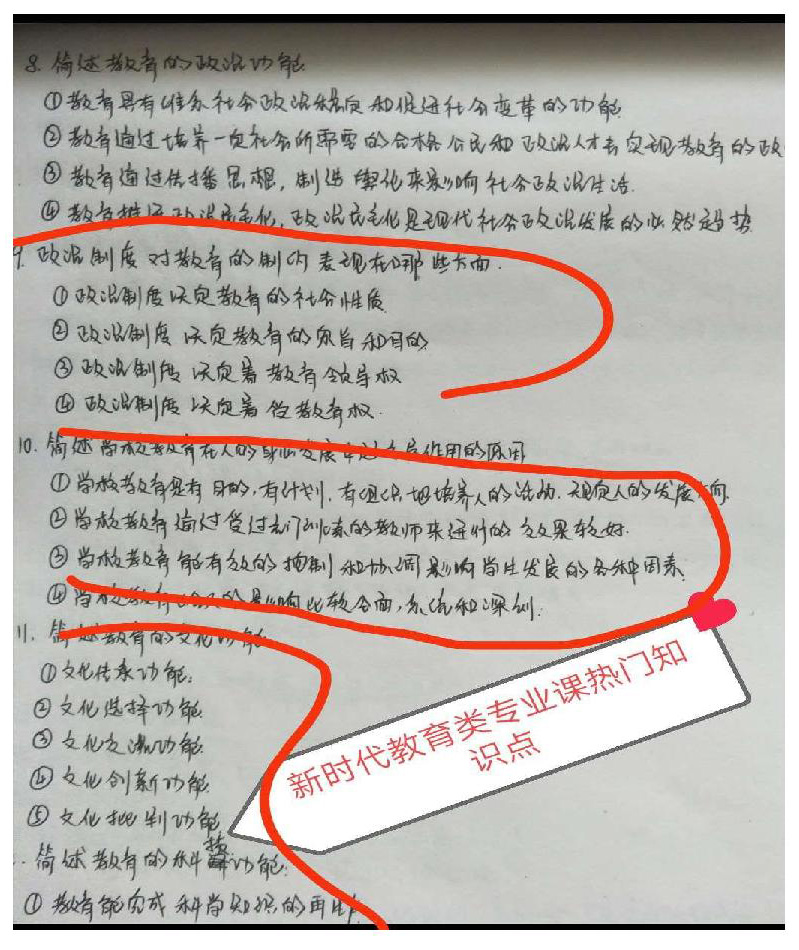 8. 简述教育的政治功能
①教育具有维系社会政治稳定和促进社会变革的功能
②教育通过培养一定社会所需要的合格公民和政治人才去实现教育的政
③教育通过传播思想,制造舆论来影响社会政治生活.
④教育推进政治民主化,政治民主化是现代社会政治发展的必然趋势
9. 政治制度对教育的制约表现在哪些方面.
①政治制度决定教育的社会性质
②政治制度决定教育的宗旨和目的
③政治制度决定着教育领导权
④政治制度决定着受教育权.
10. 简述学校教育在人的身心发展中起主导作用的原因
①学校教育是有目的,有计划,有组织地培养人的活动,规定人的发展方向.
②学校教育通过受过专门训练的教师来进行的效果较好.
③学校教育能有效的控制和协调影响学生发展的各种因素.
④学校教育给人的影响比较全面,系统和深刻.
11. 简述教育的文化功能
①文化传承功能.
②文化选择功能
③文化交流功能
④文化创新功能
⑤文化批判功能
简述教育的科技功能:
①教育能完成科学知识的再生产
新时代教育类专业课热门知
识点